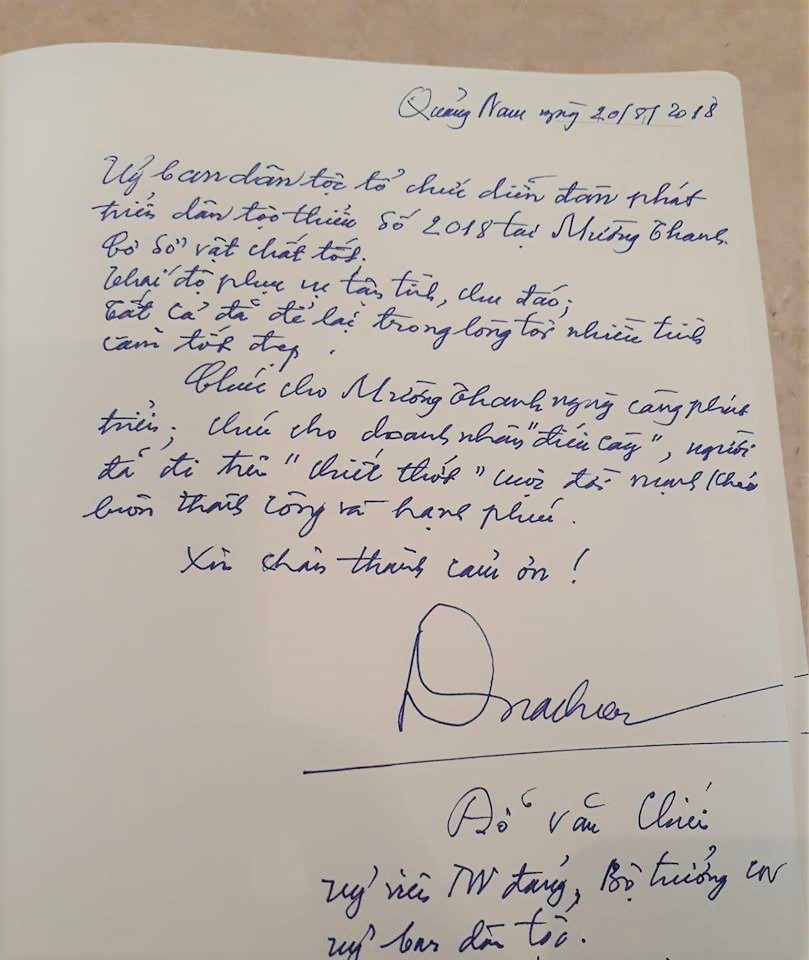 Quảng Nam ngày 20/8/2018
Uỷ ban dân tộc tổ chức diễn đàn phát
triển dân tộc thiểu số 2018 tại Mường Thanh.
Cơ sở vật chất tốt.
Thái độ phục vụ tận tình, chu đáo;
Tất cả đã để lại trong lòng tôi nhiều tình
cảm tốt đẹp.
Chúc cho Mường Thanh ngày càng phát
triển; chúc cho doanh nhân "điếu cày", người
đã đi trên "chiết thớt" cuộc đời mạnh khoẻ
luôn thành công và hạnh phúc.
Xin chân thành cảm ơn!
Đỗ Văn Chiến
Uỷ viên TW đảng, Bộ trưởng CN
Uỷ ban dân tộc.